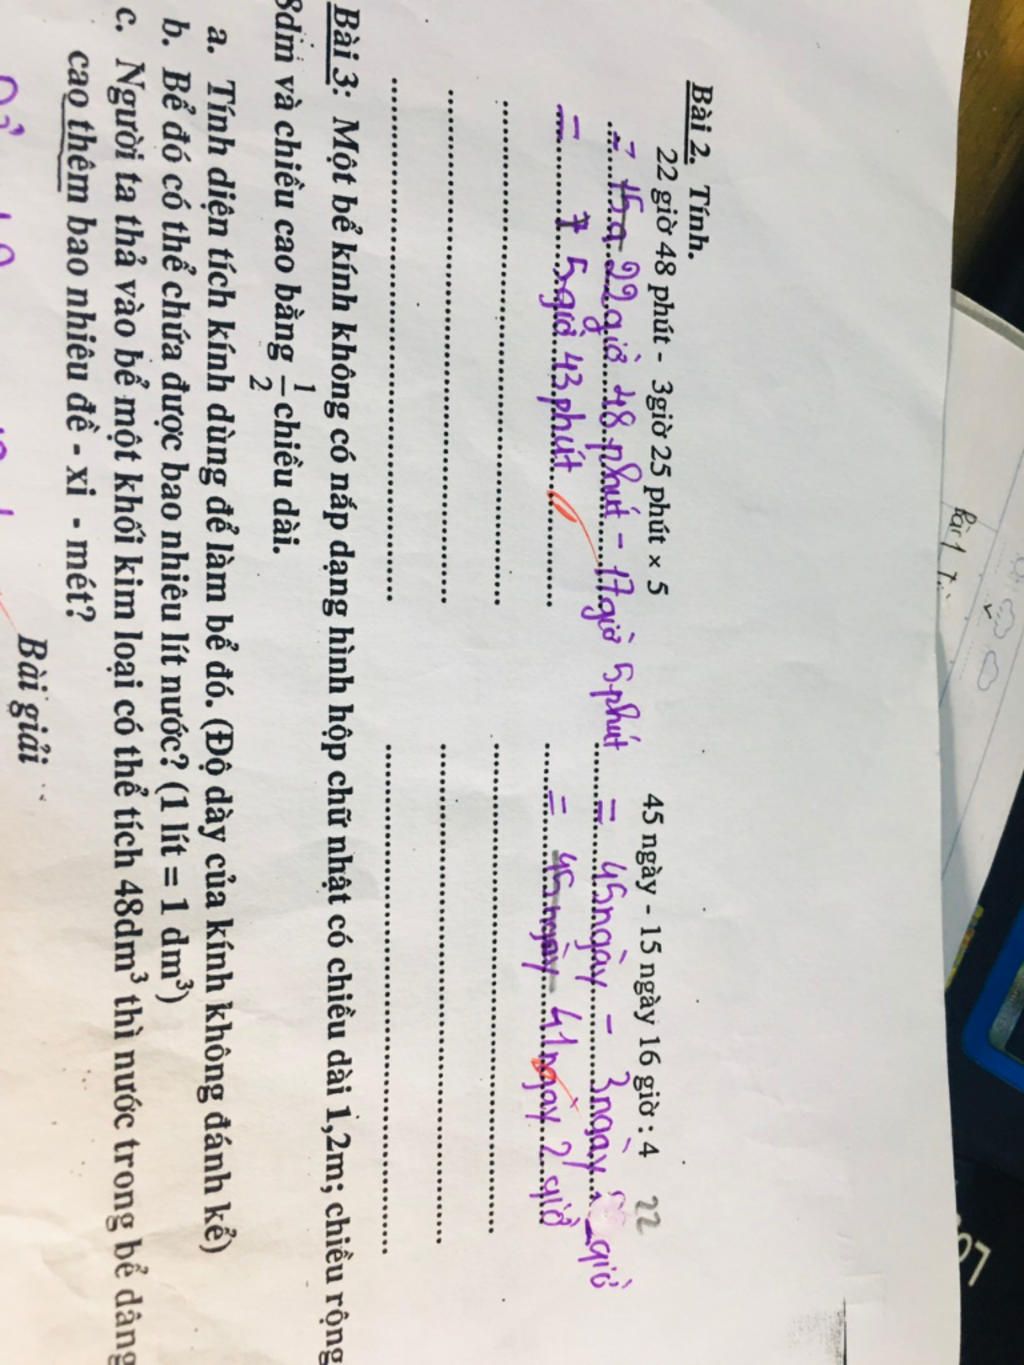 Bài 2. Tính.
22 giờ 48 phút - 3giờ 25 phút × 5
45 ngày - 15 ngày 16 giờ : 4 22
= 15g 22 giờ 48 phút - 17 giờ 5 phút
= 45 ngày - 3 ngày giờ
= 7 5 giờ 43 phút
= 45 ngày 41 ngày 2 giờ
Bài 3: Một bể kính không có nắp dạng hình hộp chữ nhật có chiều dài 1,2m; chiều rộng
8dm và chiều cao bằng 1/2 chiều dài.
a. Tính diện tích kính dùng để làm bể đó. (Độ dày của kính không đánh kể)
b. Bể đó có thể chứa được bao nhiêu lít nước? (1 lít = 1 dm³)
c. Người ta thả vào bể một khối kim loại có thể tích 48dm³ thì nước trong bể dâng
cao thêm bao nhiêu đề - xi - mét?
Bài giải